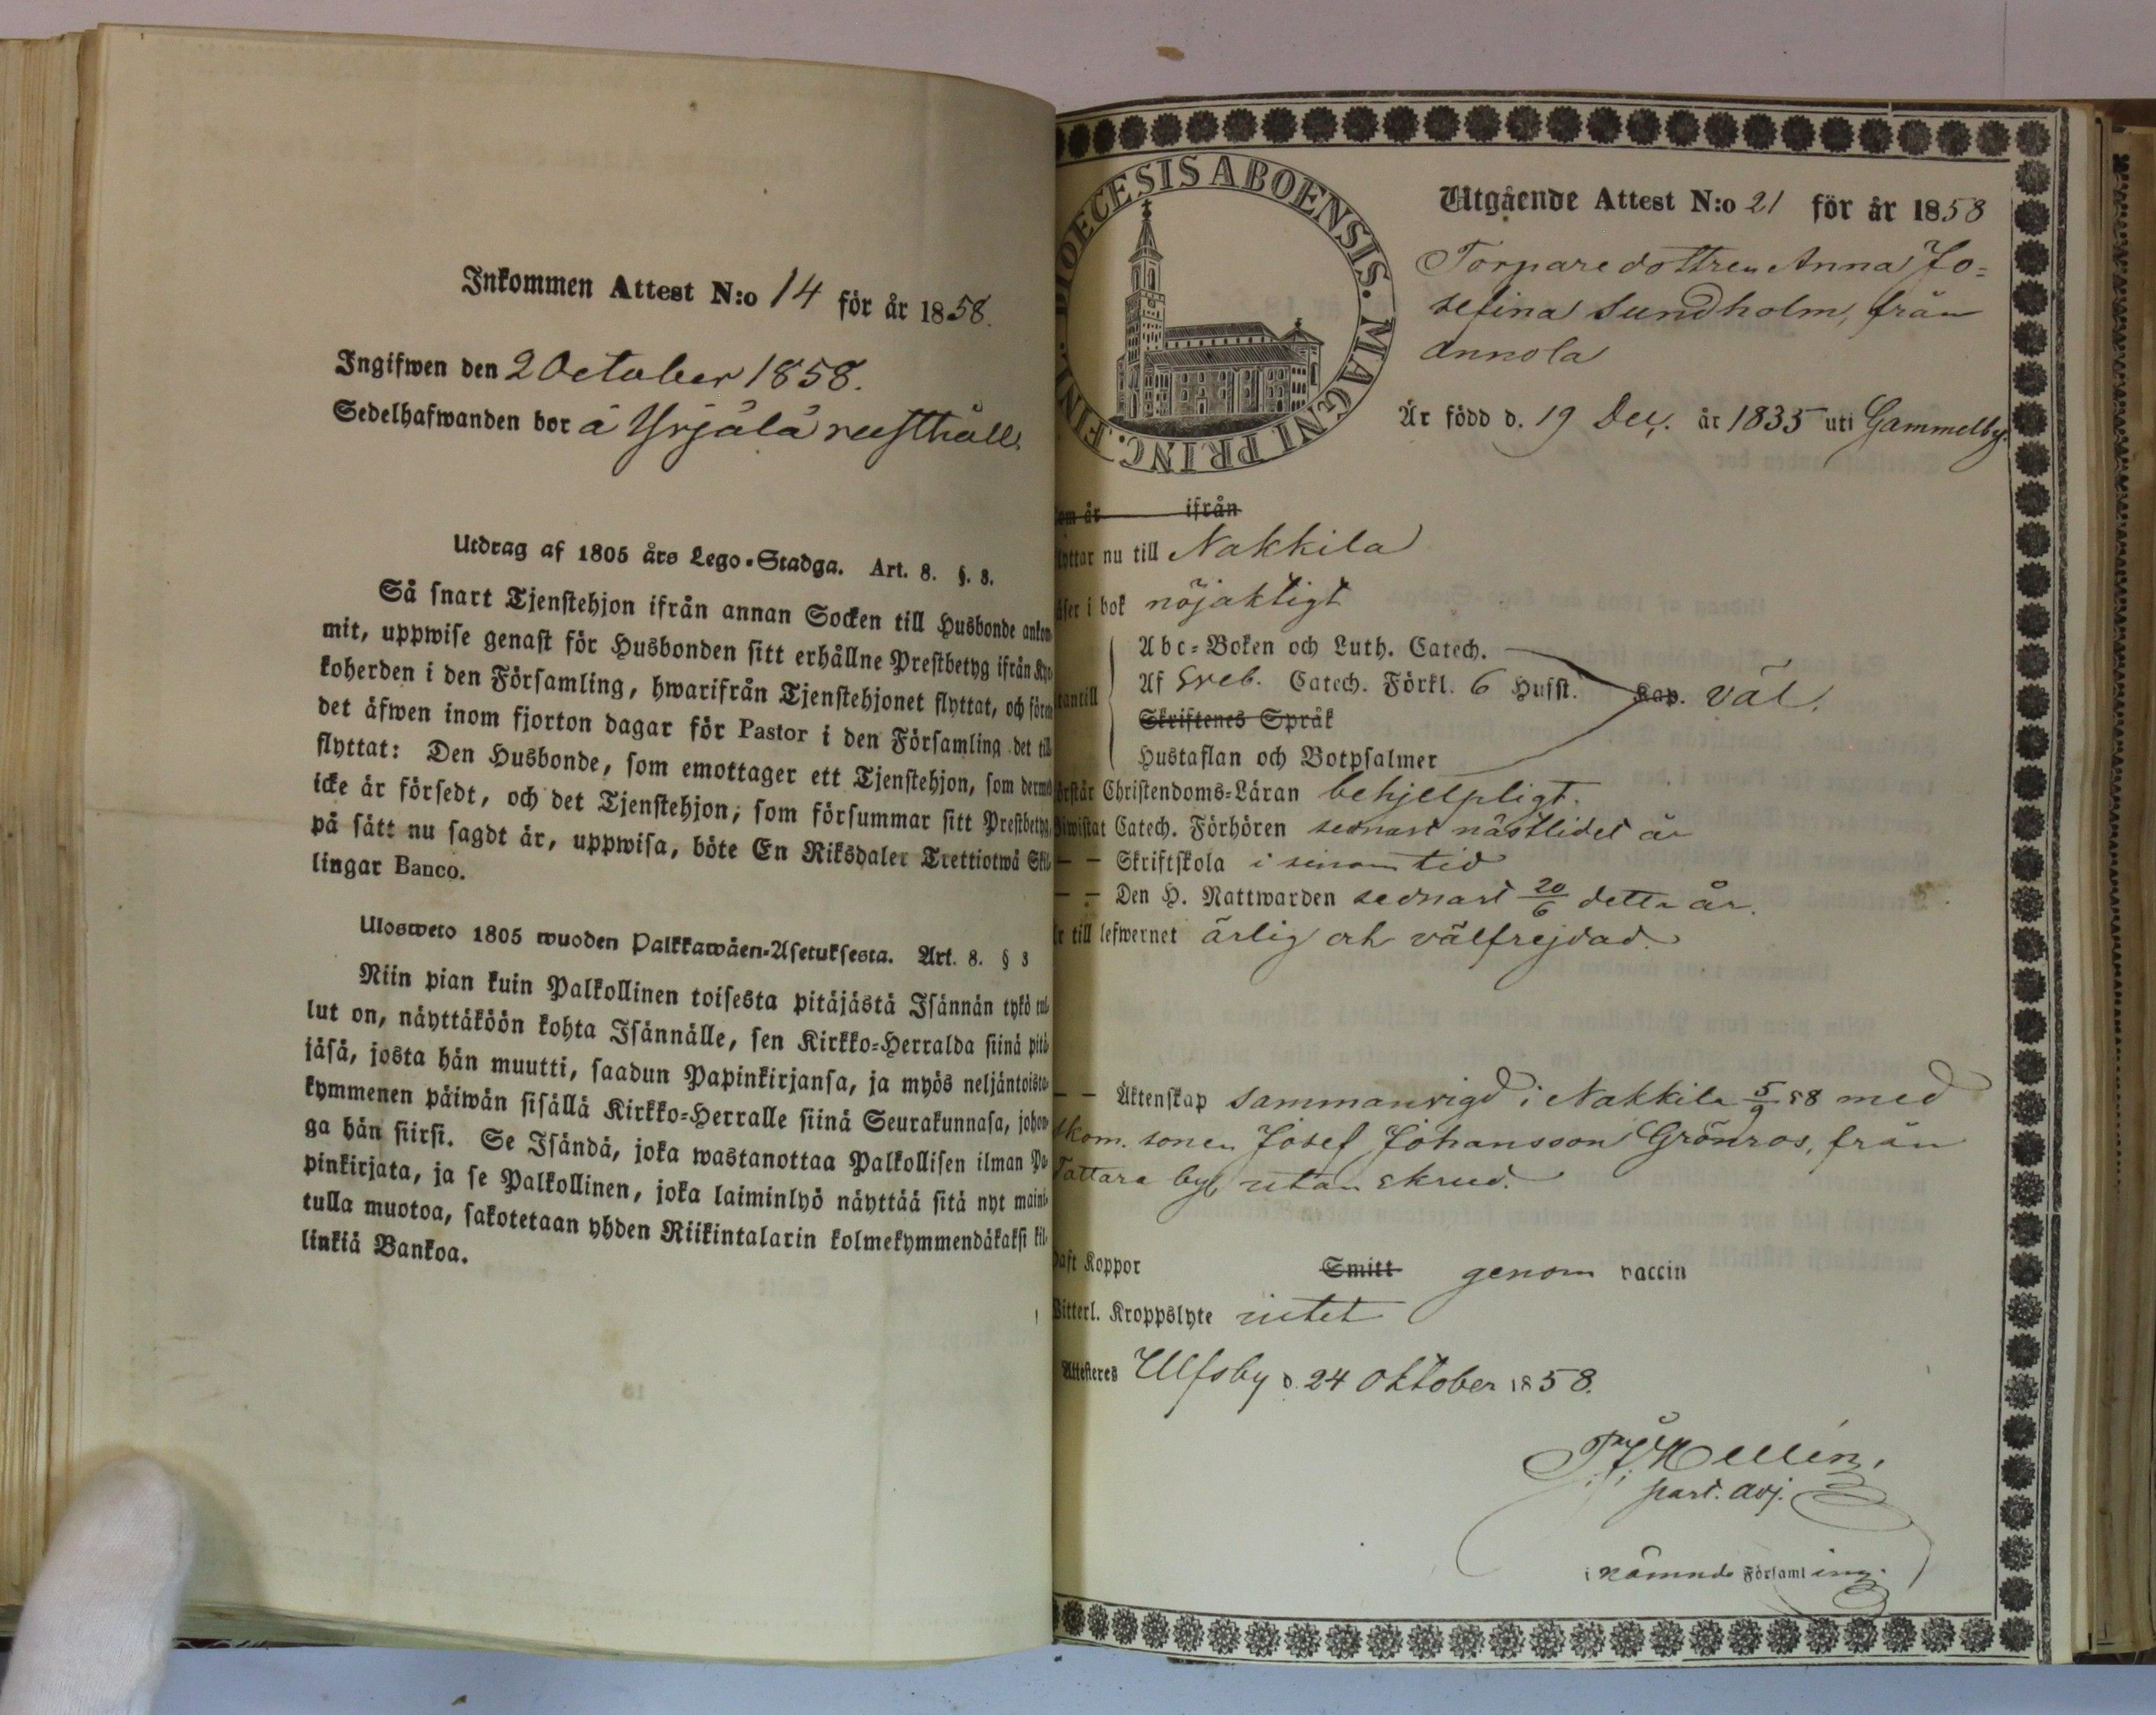 Inkommen Attest N:o 14 för år 1858.
Ingifwen den 2 October 1858.
Sedelhafwanden bor å Yrjälä rusthåll.
Utdrag af 1805 års Lego-Stadga. Art. 8. §. 8.
Så snart Tjenstehjon ifrån annan Socken till Husbonde ankom-
mit, uppwise genast för Husbonden sitt erhållne Prestbetyg ifrån Kyr-
koherden i den Församling, hwarifrån Tjenstehjonet flyttat, och förete
det äfwen inom fjorton dagar för Pastor i den Församling det till
flyttat: Den Husbonde, som emottager ett Tjenstehjon, som dermed
icke är försedt, och det Tjenstehjon, som försummar sitt Prestbetyg,
på sätt nu sagdt är, uppwisa, böte En Riksdaler Trettiotwå Skil-
lingar Banco.
Ulosweto 1805 wuoden Palkkawäen-Asetuksesta. Art. 8. § 8
Niin pian kuin Palkollinen toisesta pitäjästä Isännän tykö tul-
lut on, näyttäköön kohta Isännälle, sen Kirkko-Herralda siinä pitä-
jäsä, josta hän muutti, saadun Papinkirjansa, ja myös neljäntoista-
kymmenen päiwän sisällä Kirkko-Herralle siinä Seurakunnasa, johon-
ga hän siirsi. Se Isändä, joka wastanottaa Palkollisen ilman Pa-
pinkirjata, ja se Palkollinen, joka laiminlyö näyttää sitä nyt maini-
tulla muotoa, sakotetaan yhden Riikintalarin kolmekymmendäkaksi kil-
linkiä Bankoa.
DIOECESIS ABOENSIS. MAGNI PRINC. FINL.
Utgående Attest N:o 21 för år 1858
Torparedottren Anna Jo-
sefina Sundholm, från
Annola
Är född d. 19 Dec. år 1835 uti Gammelby.
om år ifrån
lyttar nu till Nakkila
äser i bok nöjaktigt
Abc-Boken och Luth. Catech.
tantill Af Sveb. Catech. Förkl. 6 Husst. Kap. väl.
Skriftenes Språk
Hustaflan och Botpsalmer
örstår Christendoms-Läran behjelpligt.
Biwistat Catech. Förhören sednast nästlidet år
— — Skriftskola i sinom tid
— — Den H. Nattwarden sednast 20/6 detta år.
Är till lefwernet ärlig och välfrejdad.
— — Äktenskap sammanvigd i Nakkila 5/9 58 med
skom. sonen Josef Johansson Grönros, från
Tattara by, utan skrud.
Haft Koppor Smitt genom vaccin
Witterl. Kroppslyte intet
Attesteres Ulfsby d. 24 Oktober 1858.
past. adj.
i nämnde Församling.